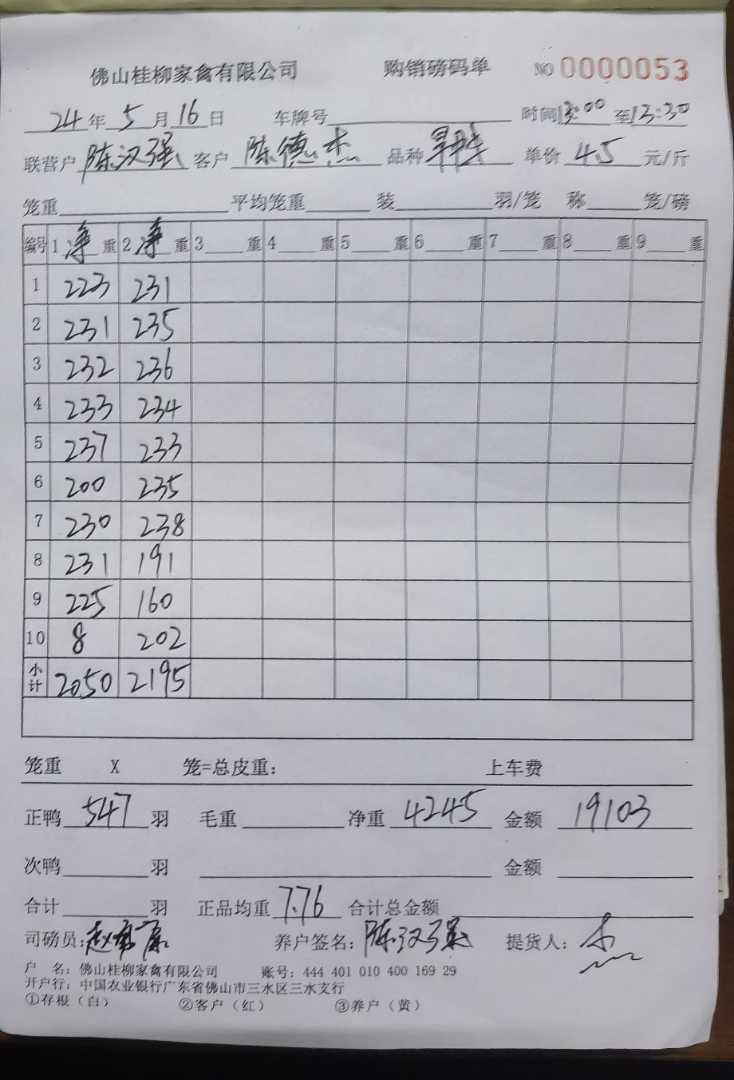 佛山桂柳家禽有限公司 购销磅码单 NO 0000053
24年5月16日 车牌号 时间13:00至13:30
联营户陈汉强 客户陈德杰 品种 单价4.5元/斤
笼重 平均笼重 装 羽/笼 称 笼/磅
编号 1净重 2净重 3 重 4 重 5 重 6 重 7 重 8 重 9 重
1 223 231
2 231 235
3 232 236
4 233 234
5 237 233
6 200 235
7 230 238
8 231 191
9 225 160
10 8 202
小计 2050 2195
笼重 X 笼=总皮重: 上车费
正鸭547羽 毛重 净重4245 金额19103
次鸭 羽 金额
合计 羽 正品均重7.76 合计总金额
司磅员:赵 养户签名:陈汉强 提货人:
户 名: 佛山桂柳家禽有限公司 账号: 444 401 010 400 169 29
开户行: 中国农业银行广东省佛山市三水区三水支行
①存根(白) ②客户(红) ③养户(黄)